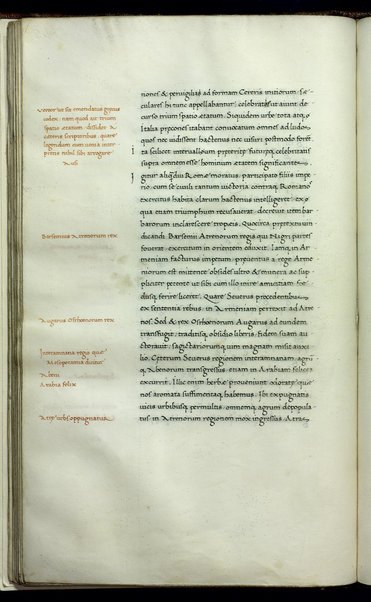 Vereor ut sit emendatus grecus
codex. nam quod ait trium
spatio ętatum, dissidet a
cęteris scriptoribus. quare
legendum cum venia inter
pretis nihil sibi arrogare
ausi
tiones & pervigilias ad formam Cereris initiorum. se-
culares hi tunc appellabantur, celebratos ut aiunt de-
cursu trium spatio ętatum. Siquidem urbe tota atq;
Italia pręcones itabant convocatum omnes ad ludos
quos nec vidissent hactenus nec visuri postmodo foret.
ita scilicet intervallum pręteritę futuręq; celebritatis
supra omnem esse hominum ętatem significantes.
Igitur aliqdiu Romę moratus, participato filiis impe-
rio, cum se civili tantum victoria contraq; Romanos
exercitus habita clarum hactenus intelligeret, ex
qua etiam triumphum recusaverat, decrevit item bar-
barorum inclarescere tropeis. Quocirca pretextu vin-
dicandi Barsemii Atrenorum regis qui Nigri partes
foverat, exercitum in orientem eduxit. Iamq; in Ar-
meniam facturus impetum, pręventus a rege Arme
niorum est mittente obsides ultro & munera ac sup-
pliciter petente ut sibi cum illo inire amicitiam foe-
dusq; ferire liceret. Quare Severus procedentibus
ex sententia rebus, in Armeniam perrexit ad Atre
nos. Sed & rex Osrhoenorum Augarus ad eundem
transfugit, traditisq; obsidio liberis, fidem suam au-
ctoravit, sagictariorumq; vim magnam misit auxi
lio. Cęterum Severus regionem interamnanam agrū
q; Abenorum transgressus, etiam in Arabiam felicem
excurrit. Illic enim herbę proveniunt odoratę, que
nos aromata suffimentaq; habemus. Ibi expugnatis
vicis urbibusq; permultis, omnemq; agrum depopula
tus, in Atrenorum regionem mox ingressus Atras
Barsemius Atrenorum rex
Augarus Osrhoenorum rex
Interamnana regio quę
Mesopotamia dicitur
Abeni
Arabia felix
Atrę urbs oppugnatur